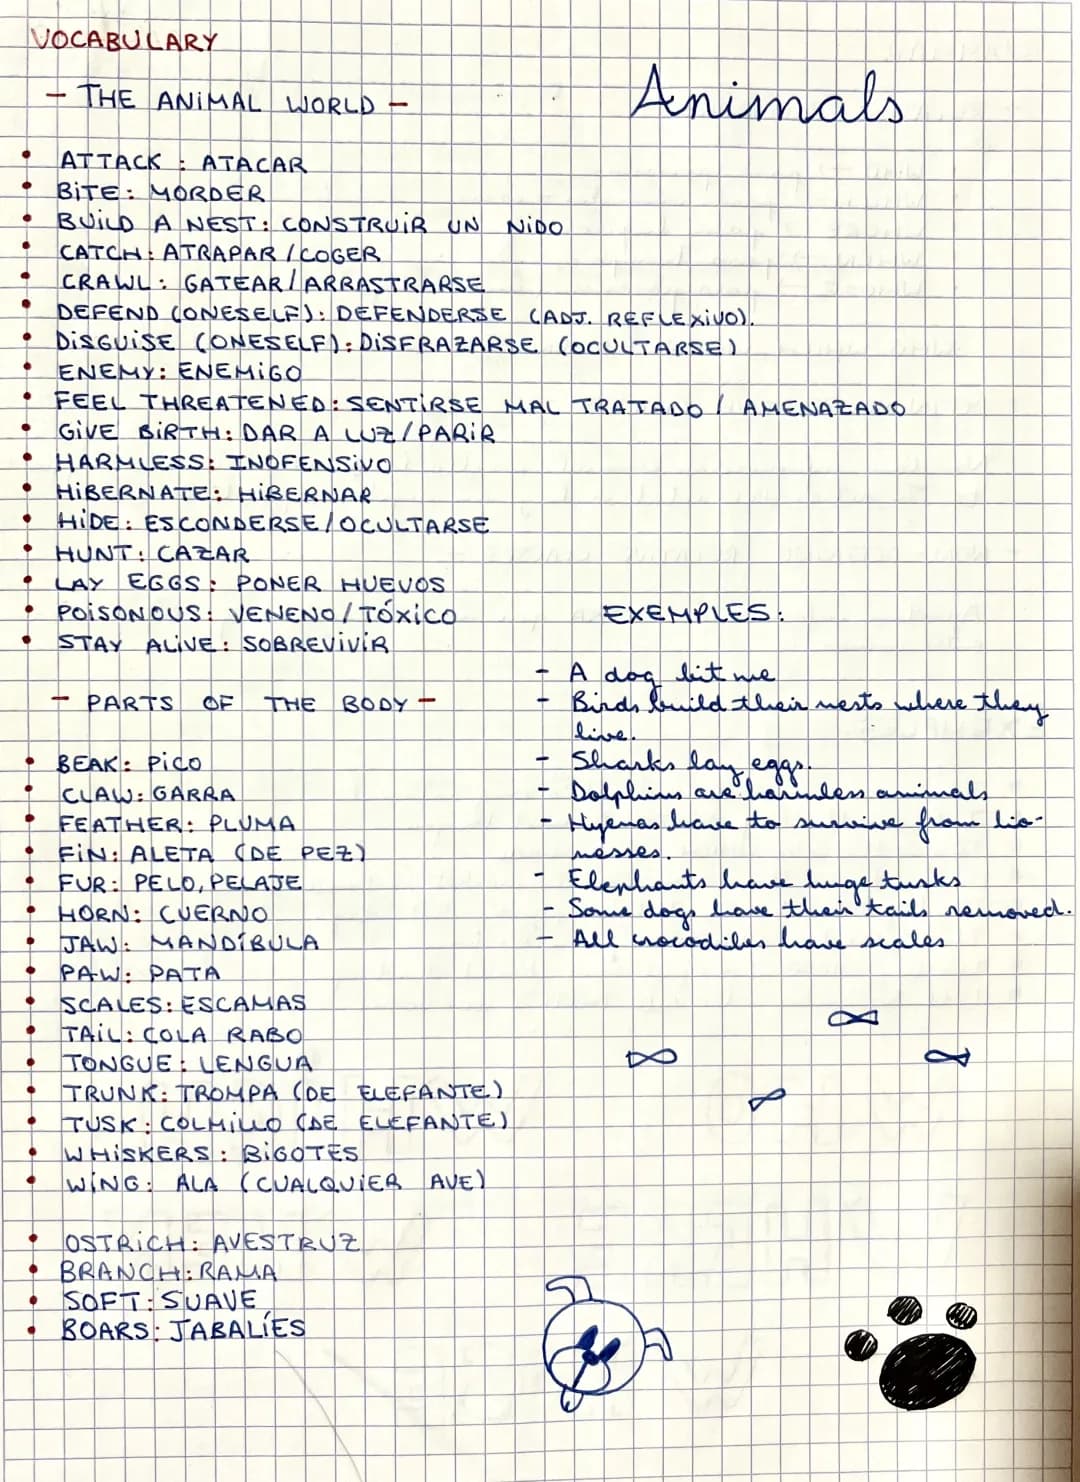 VOCABULARY
- THE ANIMAL WORLD -
Animals
• ATTACK : ATACAR
• BITE: MORDER
• BUILD A NEST: CONSTRUIR UN NIDO
• CATCH: ATRAPAR / COGER
• CRAWL: GATEAR/ARRASTRARSE
• DEFEND (ONESELF): DEFENDERSE (ADJ. REFLEXIVO).
• DISGUISE (ONESELF): DISFRAZARSE (OCULTARSE)
• ENEMY: ENEMIGO
• FEEL THREATENED: SENTIRSE MAL TRATADO / AMENAZADO
• GIVE BIRTH: DAR A LUZ/PARIR
• HARMLESS: INOFENSIVO
• HIBERNATE: HIBERNAR
• HIDE: ESCONDERSE/OCULTARSE
• HUNT: CAZAR
• LAY EGGS: PONER HUEVOS
• POISONOUS: VENENO/TÓXICO
• STAY ALIVE: SOBREVIVIR
- PARTS OF THE BODY -
• BEAK: PICO
• CLAW: GARRA
• FEATHER: PLUMA
• FIN: ALETA (DE PEZ)
• FUR: PELO, PELAJE
• HORN: CUERNO
• JAW: MANDÍBULA
• PAW: PATA
• SCALES: ESCAMAS
• TAIL: COLA RABO
• TONGUE: LENGUA
• TRUNK: TROMPA (DE ELEFANTE)
• TUSK: COLMILLO (DE ELEFANTE)
• WHISKERS: BIGOTES
• WING: ALA (CUALQUIER AVE)
• OSTRICH: AVESTRUZ
• BRANCH: RAMA
• SOFT: SUAVE
• BOARS: JABALÍES
EXEMPLES:
- A dog bit me
- Birds build their nests where they
live.
- Sharks lay eggs.
- Dolphins are harmless animals
- Hyenas have to survive from lio-
nesses.
- Elephants have huge tusks
- Some dogs have their tails removed.
- All crocodiles have scales